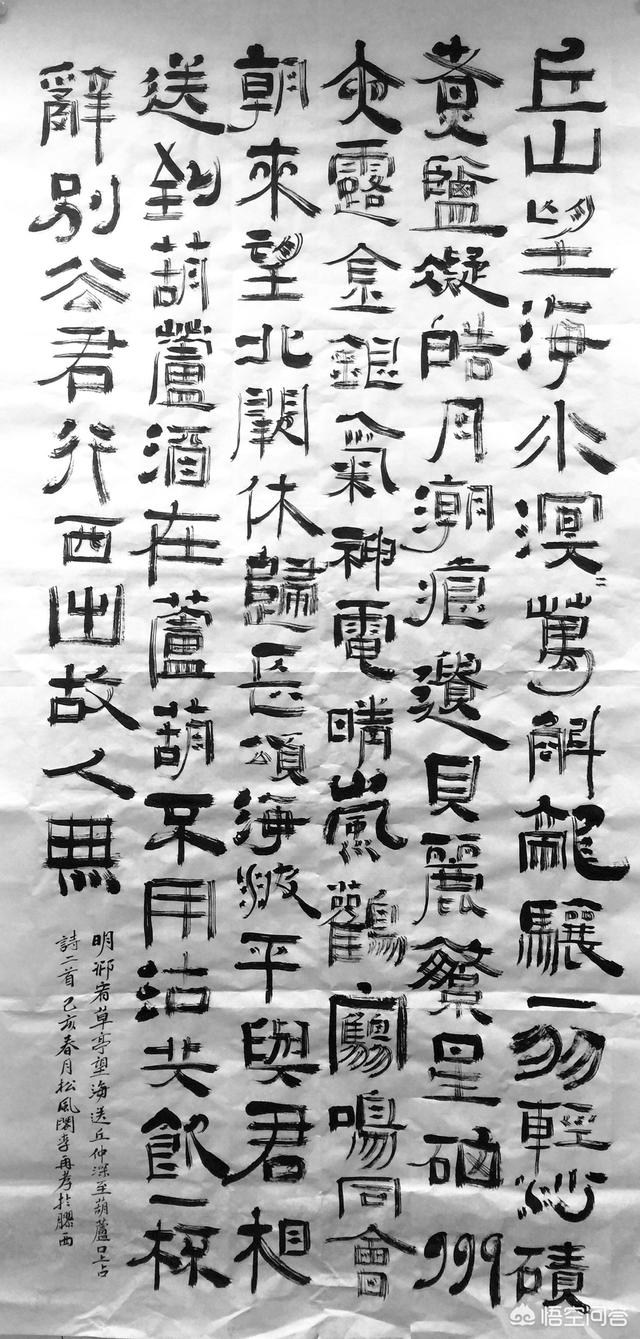 丘山望海水溟〻萬斛龍驤一羽輕沙磧
煮鹽凝皓月潮痕貝麗繁星硇州
夜露金銀氣神電晴嵐鸛鶴鳴同會
朝來望北闕休歸長頌海波平與君相
送到葫蘆酒在蘆葫不用沽共飲一杯
辭別公君行西出故人無
明邢宥草亭望海送丘仲深至葫蘆口占
詩二首己亥春月松風閣李再孝於膠西
悟空问答